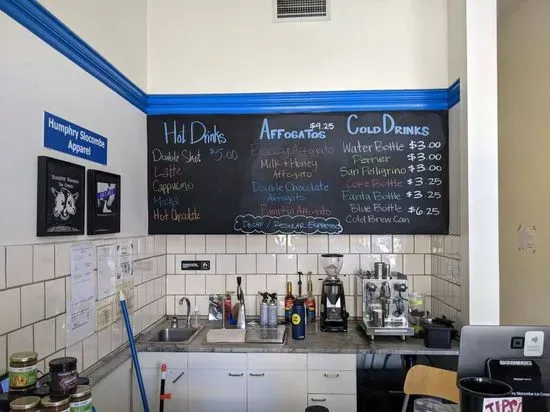 Humphry Slocombe
Apparel
Hot Drinks
Double Shot $5.00
Latte
Cappucino
Mocha
Hot Chocolate
Affogatos
$9.25
Affogato
Milk + Honey
Affogato
Double Chocolate
Affogato
Affogato
Decaf / Regular Espresso
Cold Drinks
Water Bottle $3.00
Perrier $3.00
San Pelligrino $3.00
Coke Bottle $3.25
Fanta Bottle $3.25
Blue Bottle $6.25
Cold Brew Can
Humphry Slocombe
TIPS